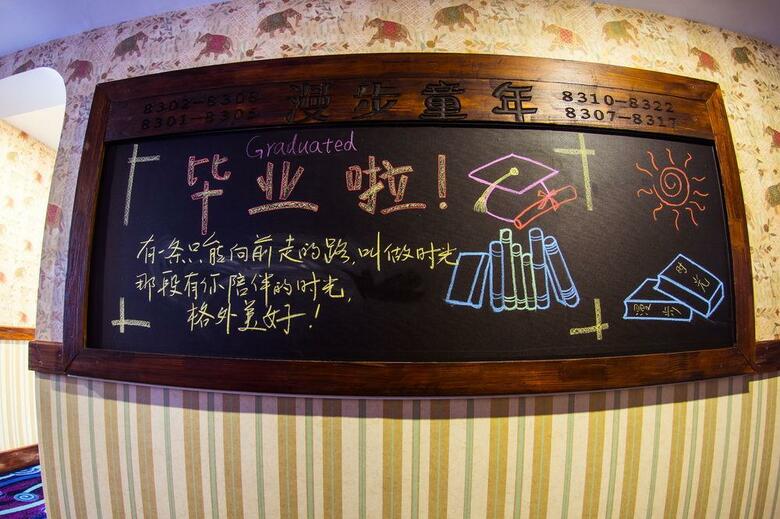 8302-8308 漫步童年 8310-8322
8301-8305 8307-8317
Graduated
毕业啦!
有一条只能向前走的路,叫做时光
那段有你陪伴的时光,
格外美好!
时光
漫步